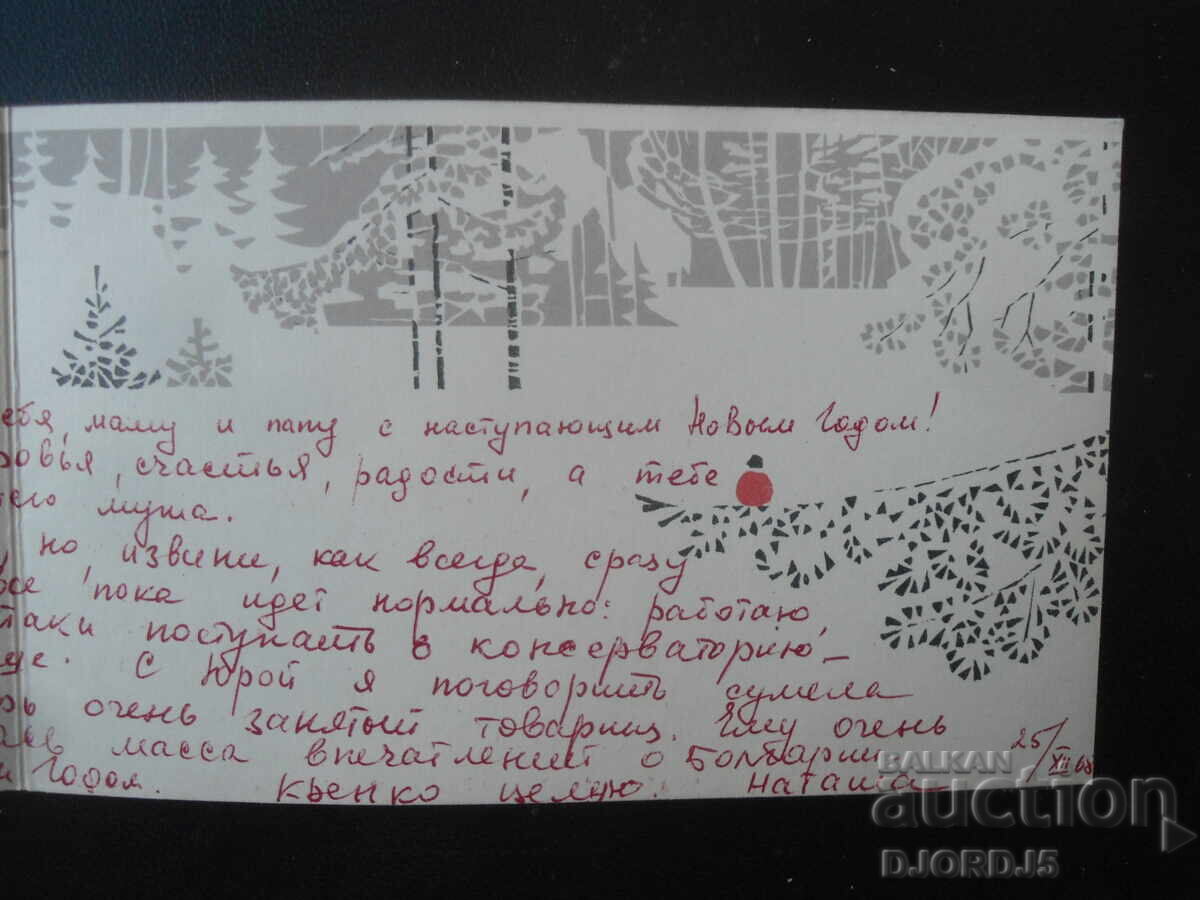 ебя, маму и папу с наступающим Новым Годом!
ровья, счастья, радости, а тебе
его мужа.
но, извини, как всегда, сразу
все пока идет нормально: работаю,
таки поступать в консерваторию –
ще. С Юрой я поговорить сумела
рь очень занятый товарищ. Ему очень
ась масса впечатлений о Болгарии
м Годом. Крепко целую. Наташа
25/XII
BALKAN
auction
DJORDJ5